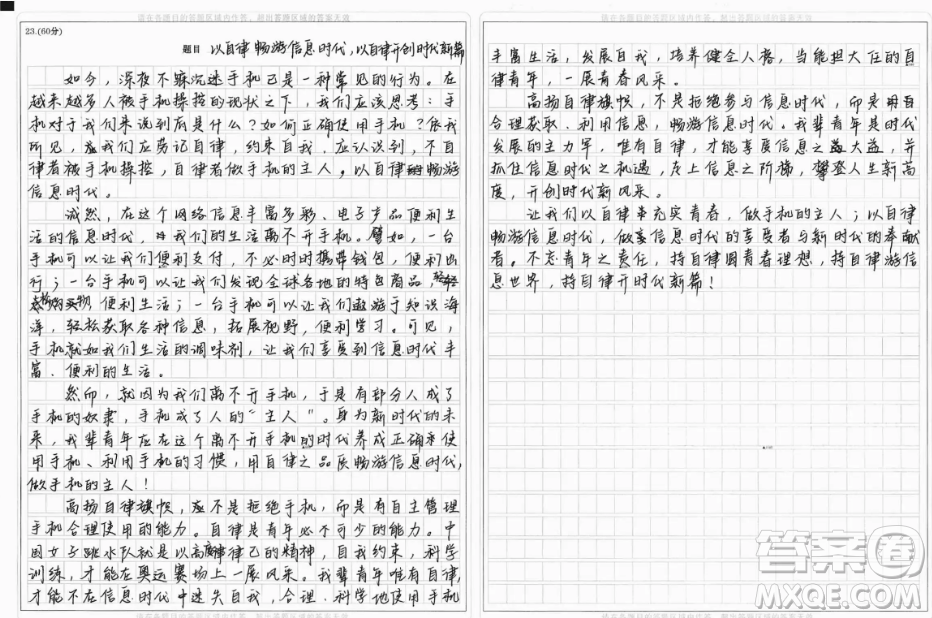 请在各题目的答题区域内作答，超出答题区域的答案无效
23.(60分)
题目 以自律畅游信息时代，以自律开创时代新篇
如今，深夜不寐沉迷手机已是一种常见的行为。在
越来越多人被手机操控的现状之下，我们应该思考：手
机对于我们来说到底是什么？如何正确使用手机？依我
所见，我们应房记自律，约束自我，应认识到，不自
律者被手机操控，自律者做手机的主人。以自律畅游
信息时代。
诚然，在这个网络信息丰富多彩、电子产品便利生
活的信息时代，我们的生活离不开手机。譬如，一台
手机可以让我们便利支付，不必时时携带钱包，便利出
行；一台手机可以让我们发现全球各地的特色商品，轻轻
点购买物，便利生活；一台手机可以让我们遨游于知识海
洋，轻松获取各种信息，拓展视野，便利学习。可见，
手机就如我们生活的调味剂，让我们享受到信息时代丰
富、便利的生活。
然而，就因为我们离不开手机，于是有部分人成了
手机的奴隶，手机成了人的“主人”。身为新时代的未
来，我辈青年应在这个离不开手机的时代养成正确使
用手机、利用手机的习惯，用自律之品质畅游信息时代，
做手机的主人！
高扬自律旗帜，不是拒绝手机，而是有自主管理
手机合理使用的能力。自律是青年必不可少的能力。中
国女子跳水队就是以高度律己的精神，自我约束，科学
训练，才能在奥运赛场上一展风采。我辈青年唯有自律，
才能不在信息时代中迷失自我，合理、科学地使用手机
请在各题目的答题区域内作答，超出答题区域的答案无效
请在各题目的答题区域内作答，超出答题区域的答案无效
丰富生活，发展自我，培养健全人格，当能担大任的自
律青年，一展青春风采。
高扬自律旗帜，不是拒绝参与信息时代，而是用自
合理获取、利用信息，畅游信息时代。我辈青年是时代
发展的主力军，唯有自律，才能享展信息之大益，并
抓住信息时代之机遇，走上信息之阶梯，攀登人生新高
度，开创时代新风采。
让我们以自律来充实青春，做手机的主人；以自律
畅游信息时代，做信息时代的享受者与新时代的奉献
者。不忘青年之责任，持自律圆青春理想，持自律游信
息世界，持自律开时代新篇！
请在各题目的答题区域内作答，超出答题区域的答案无效
答案圈
MXQE.COM